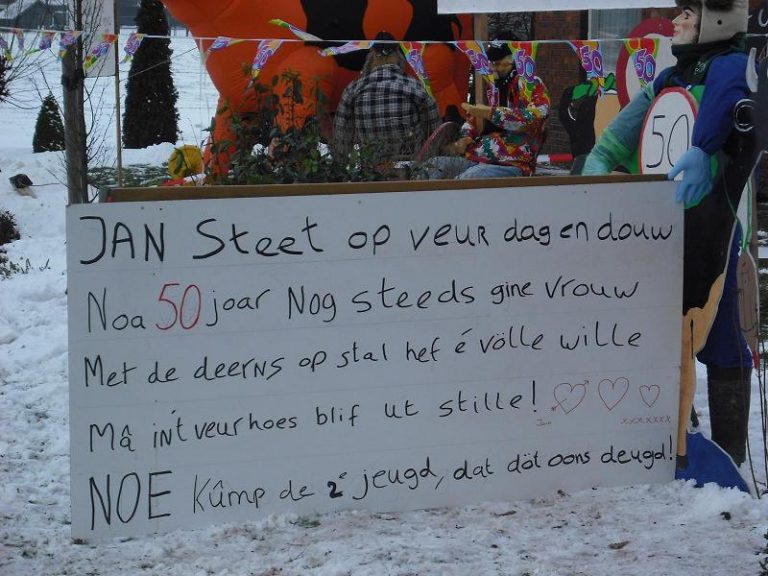 50 50 50
50
JAN Steet op veur dag en douw
Noa 50 joar Nog steeds gine vrouw
Met de deerns op stal hef é völle wille
Mâ in't veurhoes blif ut stille!
Jan xxxxxxx
NOE Kûmp de 2e jeugd, dat döt oons deugd!